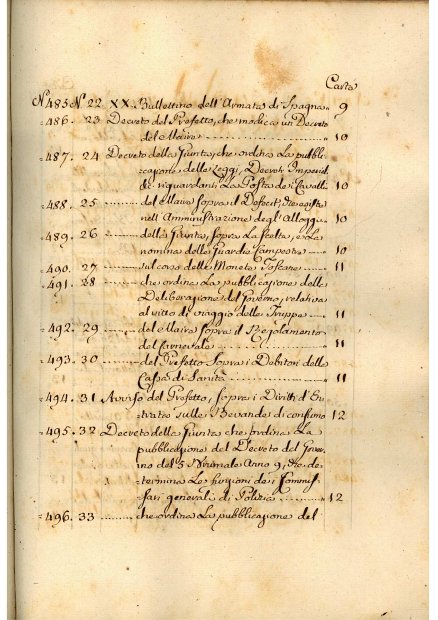 Carte
N.º 485 N.º 22 XX. Bullettino dell'Armata di Spagna 9
486. 23 Decreto del Prefetto, che modica un Decreto
del Maire 10
487. 24 Decreto della Giunta, che ordina la pubbli-
cazione delle Leggi, Decreti Imperiali
riguardanti la Posta dei Cavalli 10
488. 25 del Maire sopra il Deficit, che esiste
nell'Amministrazione degl'Alloggi 10
489. 26 della Giunta, sopra la scelta, e la
nomina delle Guardie Campestri 10
490. 27 sul corso delle Monete Toscane 11
491. 28 che ordina la pubblicazione della
Deliberazione del Governo, relativa
al vitto di viaggio delle Truppe 11
492. 29 del Maire sopra il Regolamento
del Carnevale 11
493. 30 del Prefetto sopra i Debitori della
Cassa di Sanità 11
494. 31 Avviso del Prefetto, sopra i Diritti d'En-
trata sulle Bevande di consumo 12
495. 32 Decreto della Giunta che ordina la
pubblicazione del Decreto del Gover-
no del 5 Brumale Anno 9, che de-
termina le funzioni dei Commis-
sari generali di Polizia 12
496. 33 che ordina la pubblicazione del